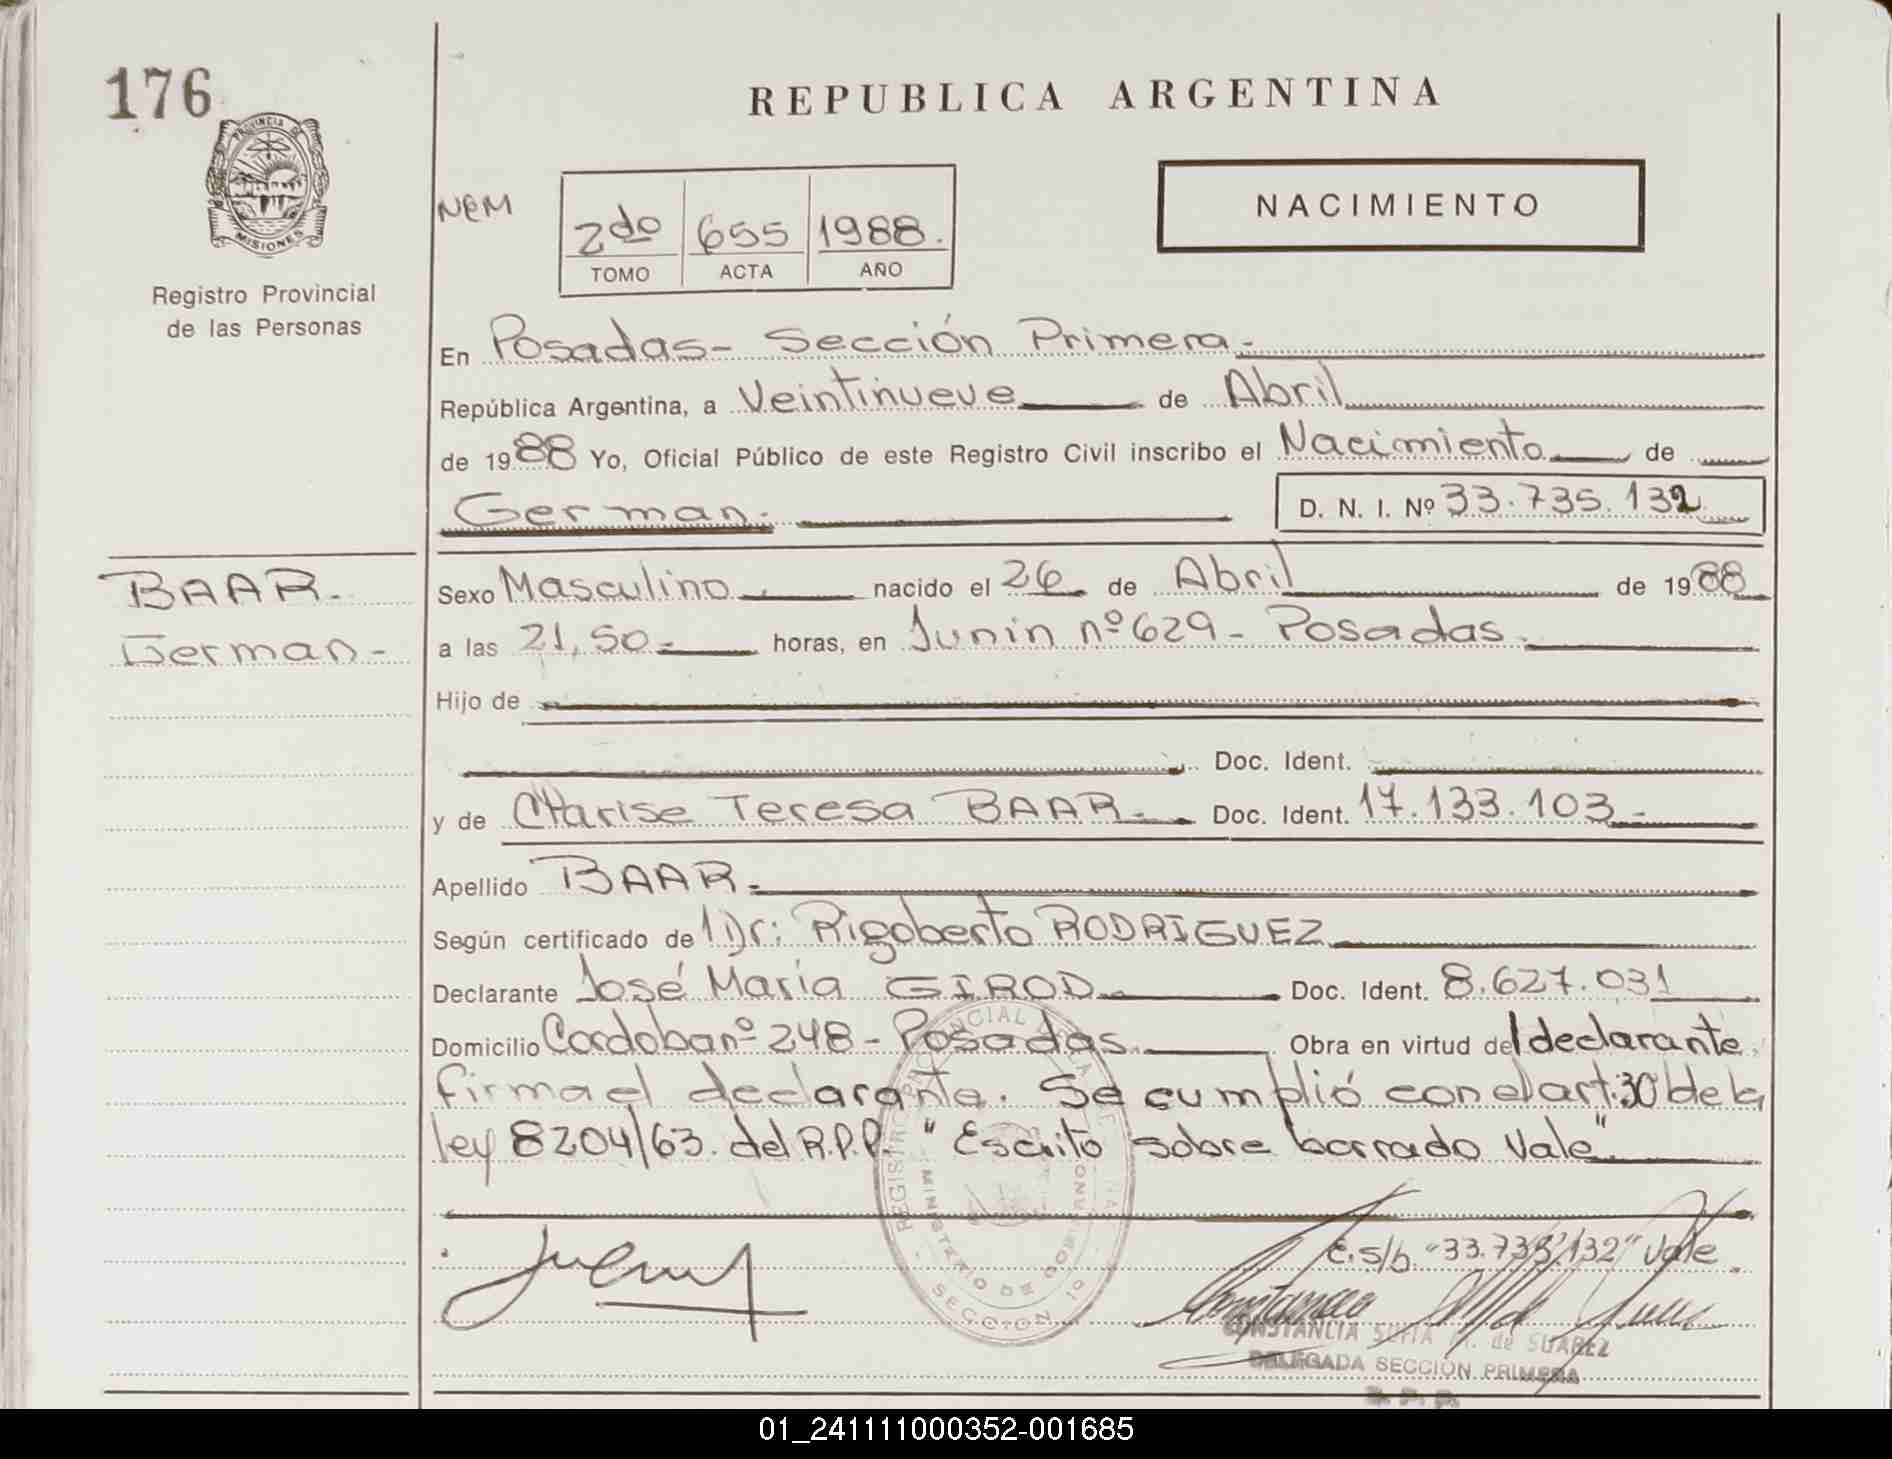 176
PROVINCIA DE
MISIONES
Registro Provincial
de las Personas
REPUBLICA ARGENTINA
NEM
2do 655 1988.
TOMO ACTA AÑO
NACIMIENTO
En Posadas- Sección Primera.-
República Argentina, a Veintinueve de Abril
de 1988 Yo, Oficial Público de este Registro Civil inscribo el Nacimiento de
German.- D. N. I. Nº 33.735.132
BAAR.
German-
Sexo Masculino nacido el 26 de Abril de 1988
a las 21,50.- horas, en Junin nº 629 - Posadas.
Hijo de
Doc. Ident.
y de Marise Teresa BAAR.- Doc. Ident. 17.133.103.-
Apellido BAAR.-
Según certificado del Dr: Rigoberto RODRIGUEZ
Declarante José María GIROD Doc. Ident. 8.627.031
Domicilio Cordoba nº 248 - Posadas. Obra en virtud del declarante
firma el declarante. Se cumplió con el art: 30 de la
ley 8204/63. del R.P.P. "Escrito sobre borrado Vale"
E.s/b. "33.735.132" Vale.
MINISTERIO DE GOBIERNO
SECCION 1º
CONSTANCIA de SUAREZ
DELEGADA SECCIÓN PRIMERA
R. P. P.
01_241111000352-001685